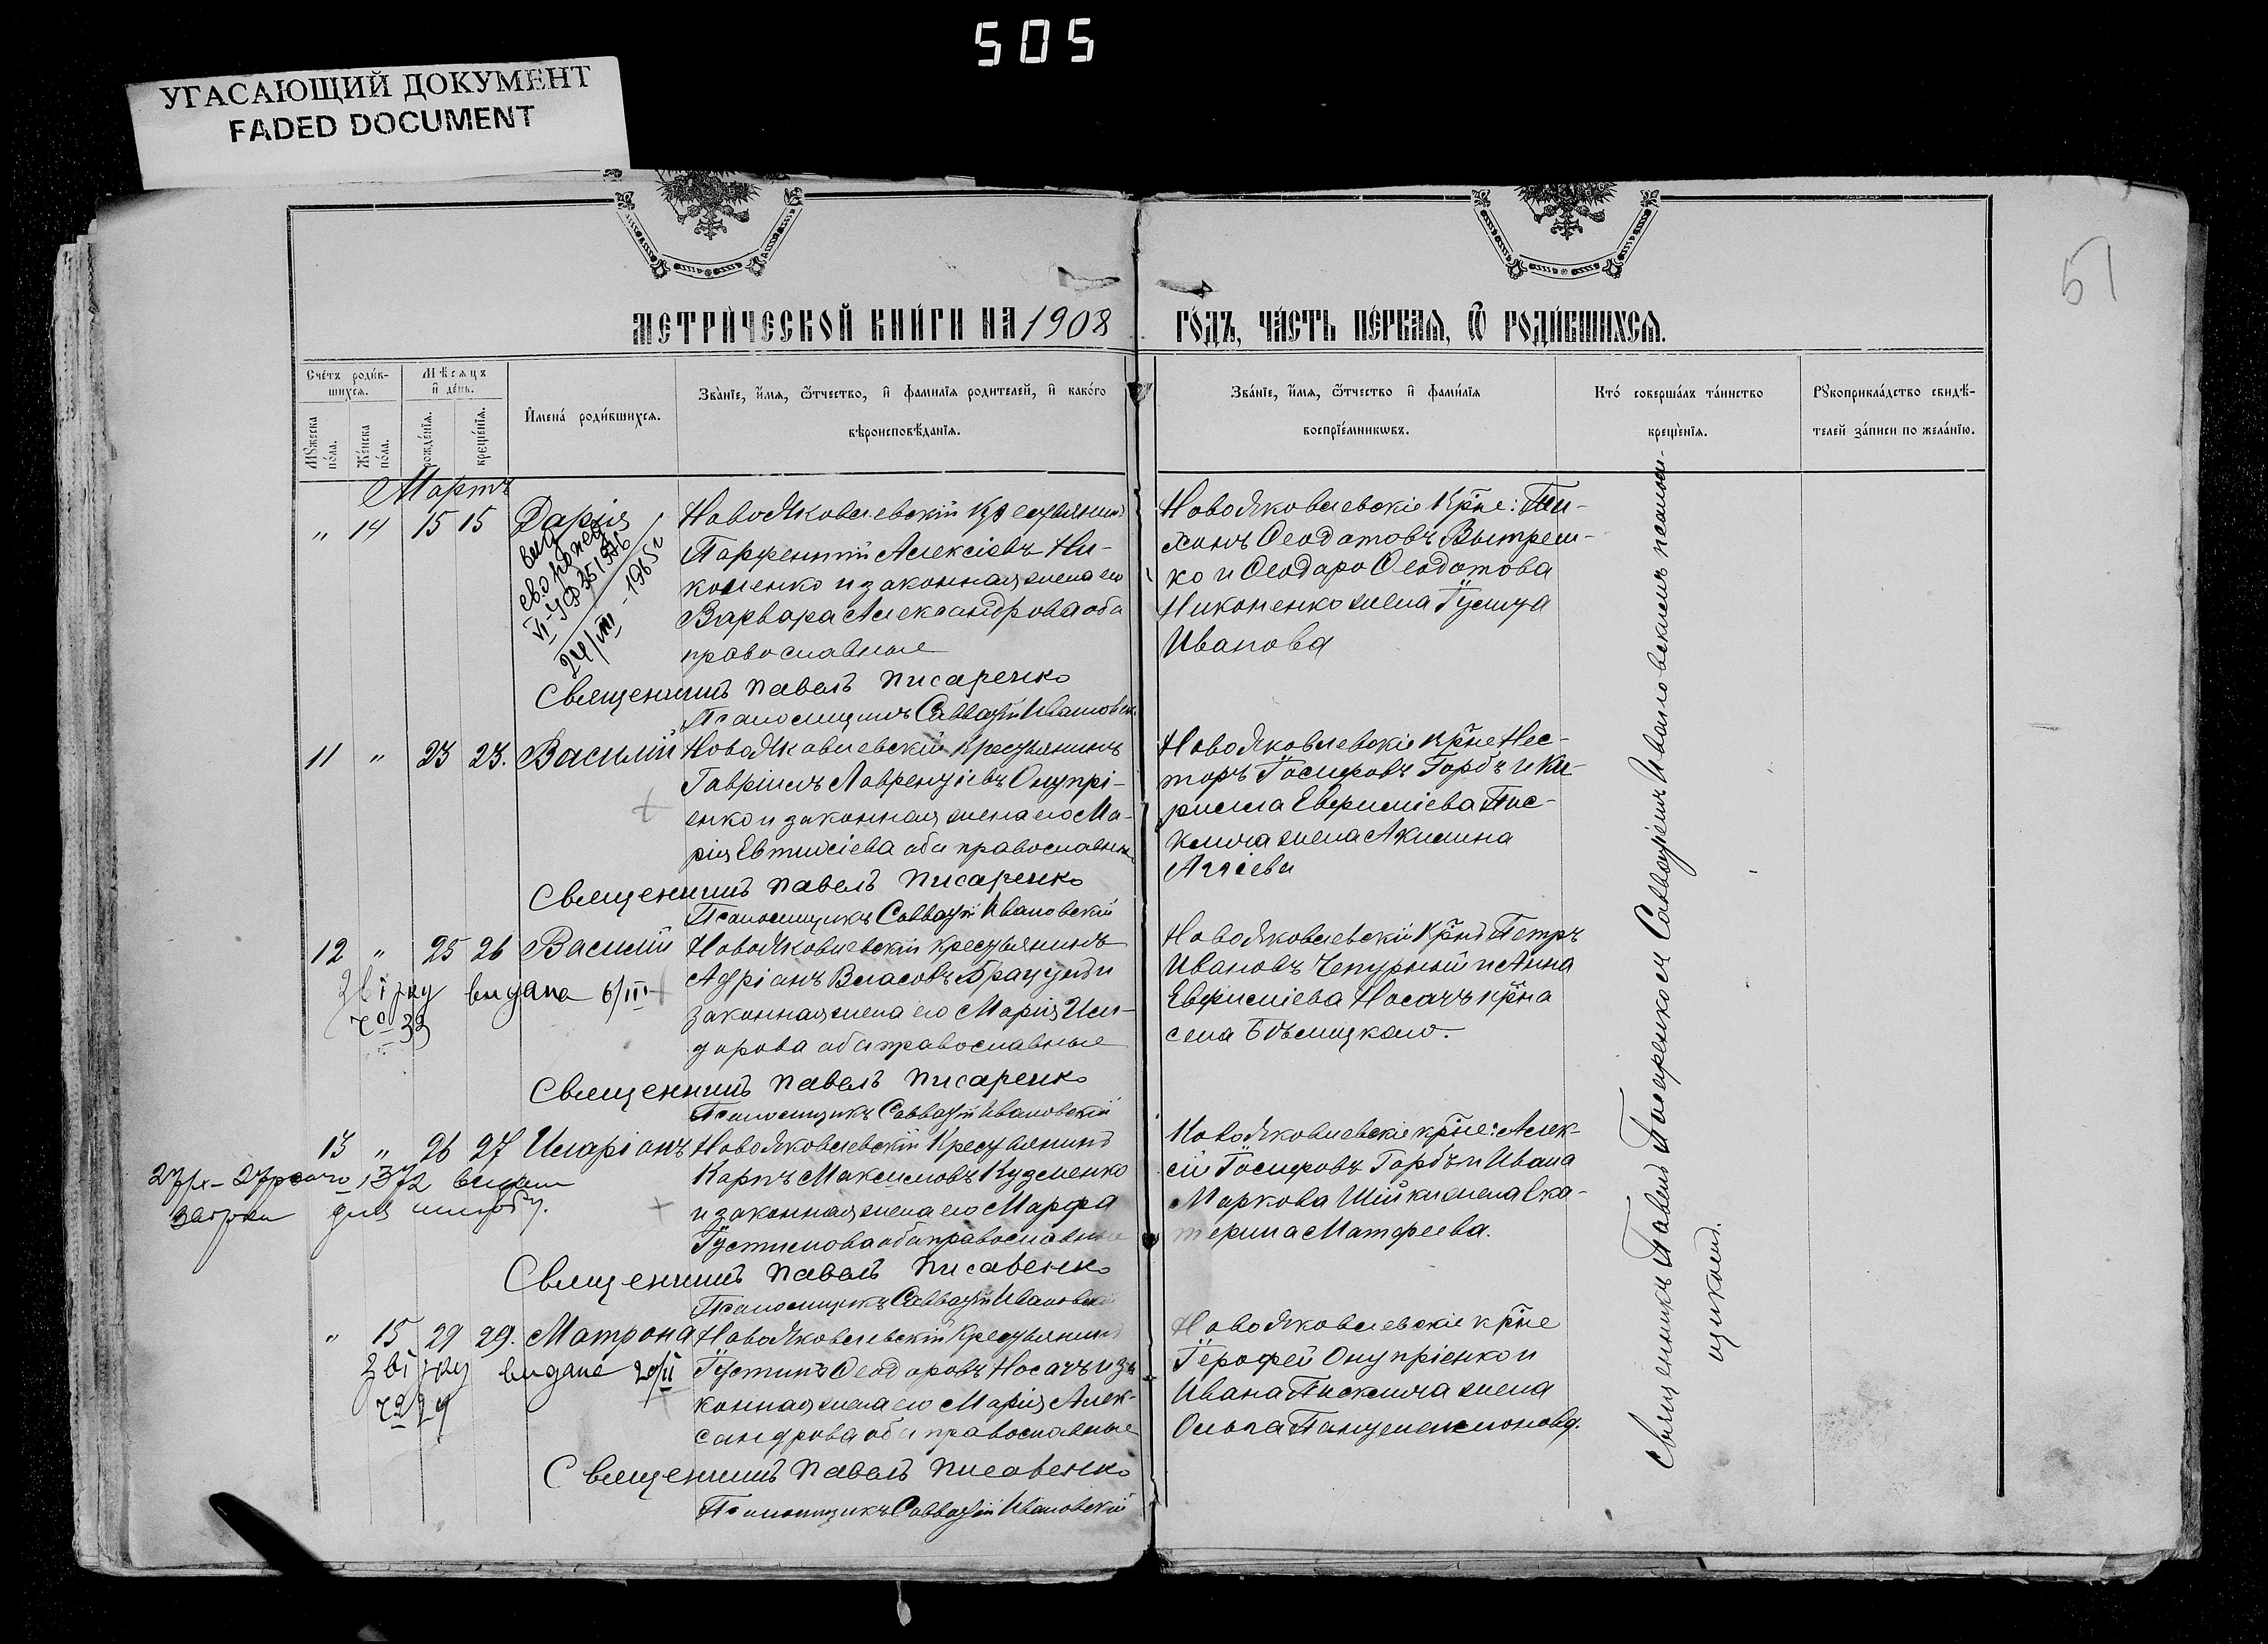 505
УГАСАЮЩИЙ ДОКУМЕНТ
FADED DOCUMENT
51
МЕТРИЧЕСКОЙ КНИГИ НА 1908
ГОДЪ, ЧАСТЬ ПЕРВАЯ, Ѡ РОДИВШИХСЯ.
Счетъ родив-
шихся.
Мѣсяцъ
и день.
Мужеска
пола.
Женска
пола.
рожденїя.
крещенїя.
Имена родившихся.
Званїе, имя, ѿчество, и фамилїя родителей, и какого
вѣроисповѣданїя.
Званїе, имя, ѿчество и фамилїя
воспрїемникѡвъ.
Кто совершалъ таинство
крещенїя.
Рукоприкладство свидѣ-
телей записи по желанїю.
Мартъ
" 14 15 15 Дарія
24/VIII - 1965 г
НовоЯковлевскій Крестьянинъ
Парфентій Алексіевъ Ни-
коненко и законная жена его
Варвара Александрова оба
православные
Священникъ Павелъ Писаренко
Псаломщикъ Савватій Ивановск.
НовоЯковлевскіе Кр̃не: Ти-
хонъ Ѳеодотовъ Вытреш-
ко и Ѳеодора Ѳеодотова
Никоненко жена Гуслиҷа
Иванова
11 " 23 23. Василій
НовоЯковлевскій Крестьянинъ
Гавріилъ Лаврентіевъ Онупрі-
енко и законная жена его Ма-
рія Евтихіева оба православные
Священникъ Павелъ Писаренко
Псаломщикъ Савватій Ивановскій
НовоЯковлевскіе кр̃не Нес-
торъ Іосифовъ Горбъ и Ки-
рилла Евфиміева Пис-
клича жена Акилина
12 " 25 26 Василій
видана 6/III
НовоЯковлевскій Крестьянинъ
Адріанъ Власовъ
законная жена его Марія Иси-
дорова оба православные
Священникъ Павелъ Писаренко
Псаломщикъ Савватій Ивановскій
НовоЯковлевскій Кр̃нъ Петръ
Ивановъ Чепурный и Анна
Евфиміева Носачъ кр̃на
села Бѣлицкаго.
13 " 26 27 Иларіонъ
НовоЯковлевскій Крестьянинъ
Карпъ Максимовъ Кузменко
и законная жена его Марфа
Іустинова оба православные
Священникъ Павелъ Писаренко
Псаломщикъ Савватій Ивановскій
НовоЯковлевскіе кр̃не: Алек-
сій Іосифовъ Горбъ и Ивана
Маркова Шійки жена Ека-
терина Матфеева.
" 15 29 29. Матрона
видана 20/II
НовоЯковлевскій Крестьянинъ
Іустинъ Ѳеодоровъ Носачъ и за-
конная жена его Марія Алек-
сандрова оба православные
Священникъ Павелъ Писаренко
Псаломщикъ Савватій Ивановскій
НовоЯковлевскіе кр̃не
Іерофей Онупріенко и
Ивана Писклича жена
Ольга Пантелеимонова.
Священникъ Павелъ Писаренко съ Савватіемъ Ивановскимъ псалом-
щикомъ.